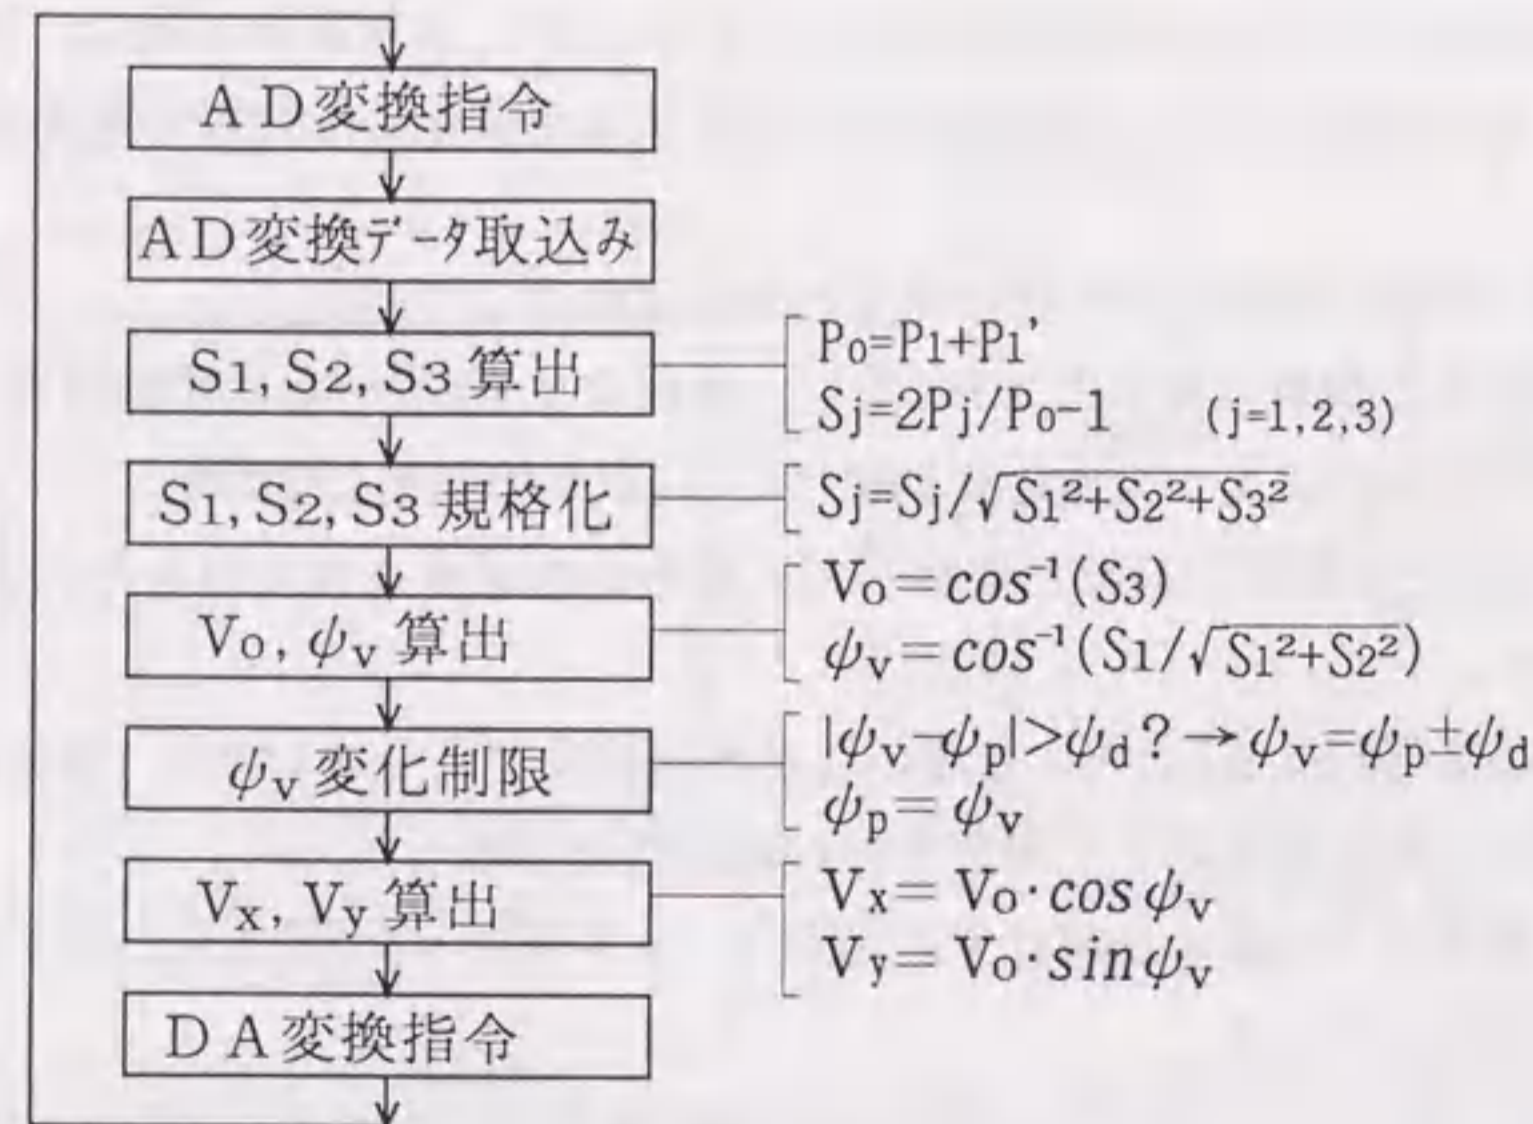 AD変換指令
AD変換データ取込み
S1, S2, S3 算出
P0=P1+P1'
Sj=2Pj/P0-1 (j=1,2,3)
S1, S2, S3 規格化
Sj=Sj/√S1²+S2²+S3²
V0, ψv 算出
V0=cos⁻¹(S3)
ψv=cos⁻¹(S1/√S1²+S2²)
ψv 変化制限
|ψv-ψp|>ψd?→ψv=ψp±ψd
ψp=ψv
Vx, Vy 算出
Vx=V0·cosψv
Vy=V0·sinψv
DA変換指令